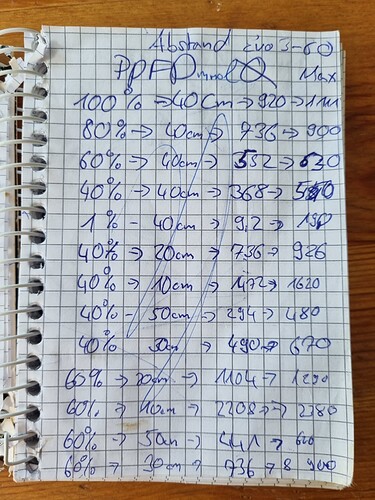 Abstand Evo 3-60
PPFD mmol Max
100% → 40cm → 920 → 1111
80% → 40cm → 736 → 900
60% → 40cm → 552 → 630
40% → 40cm → 368 → 550
1% - 40cm → 9,2 → 190
40% → 20cm → 736 → 926
40% → 10cm → 1472 → 1620
40% - 50cm → 294 → 480
40% 30cm → 490 → 670
60% → 20cm → 1104 → 1290
60% → 10cm → 2208 → 2380
60% → 50cm → 441 → 620
60% → 30cm → 736 → 900